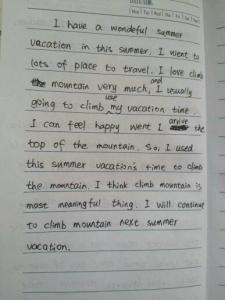 I have a wondeful summer
vacation in this summer. I went to
lots of place to travel. I love climb
mountain very much, and I usually
going to climb use my vacation time.
I can feel happy went I arrive the
top of the mountain. So, I used
this summer vacation's time to climb
the mountain. I think climb mountain is
most meaningful thing. I will continue
to climb mountain next summer
vacation.